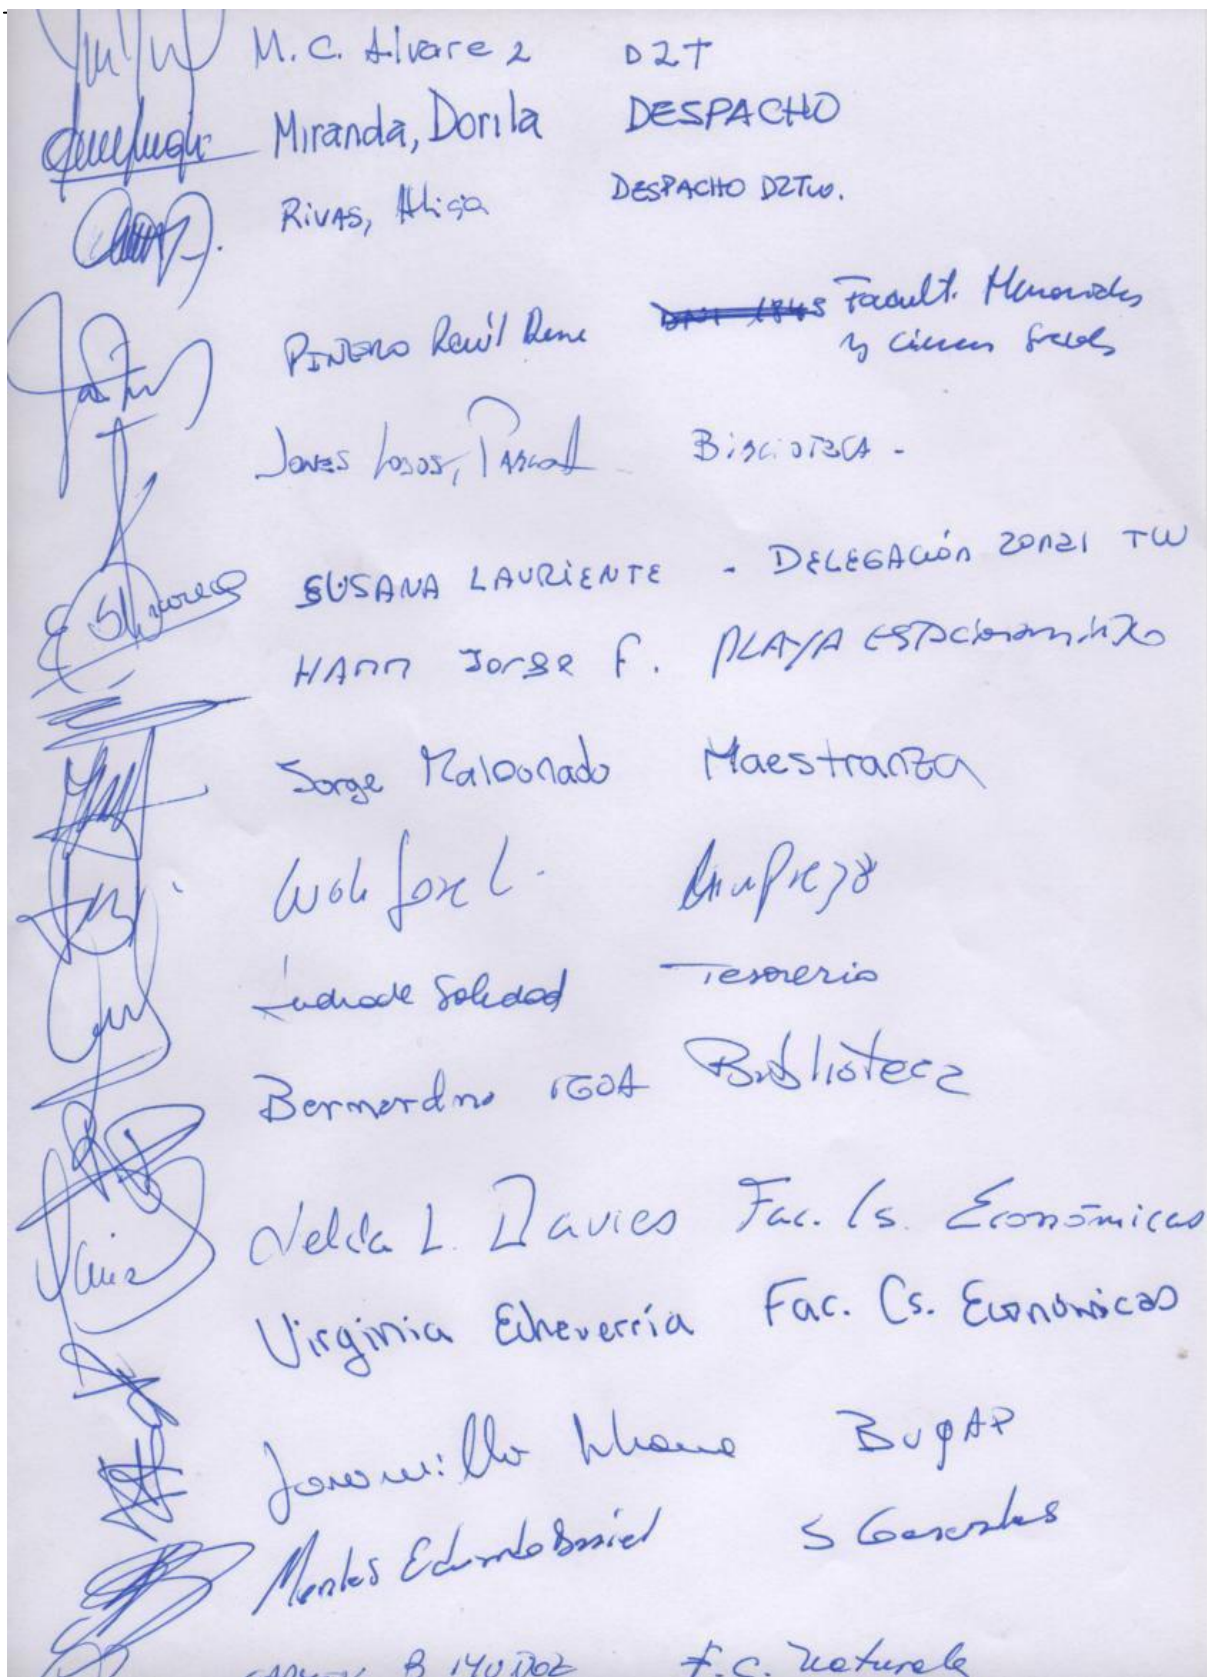 M. C. Alvarez DZT
Miranda, Dorila DESPACHO
RIVAS, Alicia DESPACHO DZTW.
PIÑERO Raúl Rene DNI 1845 Facult. Humanidades
y Ciencias Sociales
Jones Pascual BIBLIOTECA -
SUSANA LAURIENTE - DELEGACIÓN ZONAL TW
HAnn Jorge F. PLAYA ESTACIONAMIENTO
Jorge Maldonado Maestranza
Jose L. Limpieza
Andrade Soledad Tesoreria
Bernardino IGOA Biblioteca
Nelda L. Davies Fac. Cs. Económicas
Virginia Echeverría Fac. Cs. Económicas
Jaramillo
Montes Eduardo Daniel S Generales
B MUÑOZ F. C. Naturale